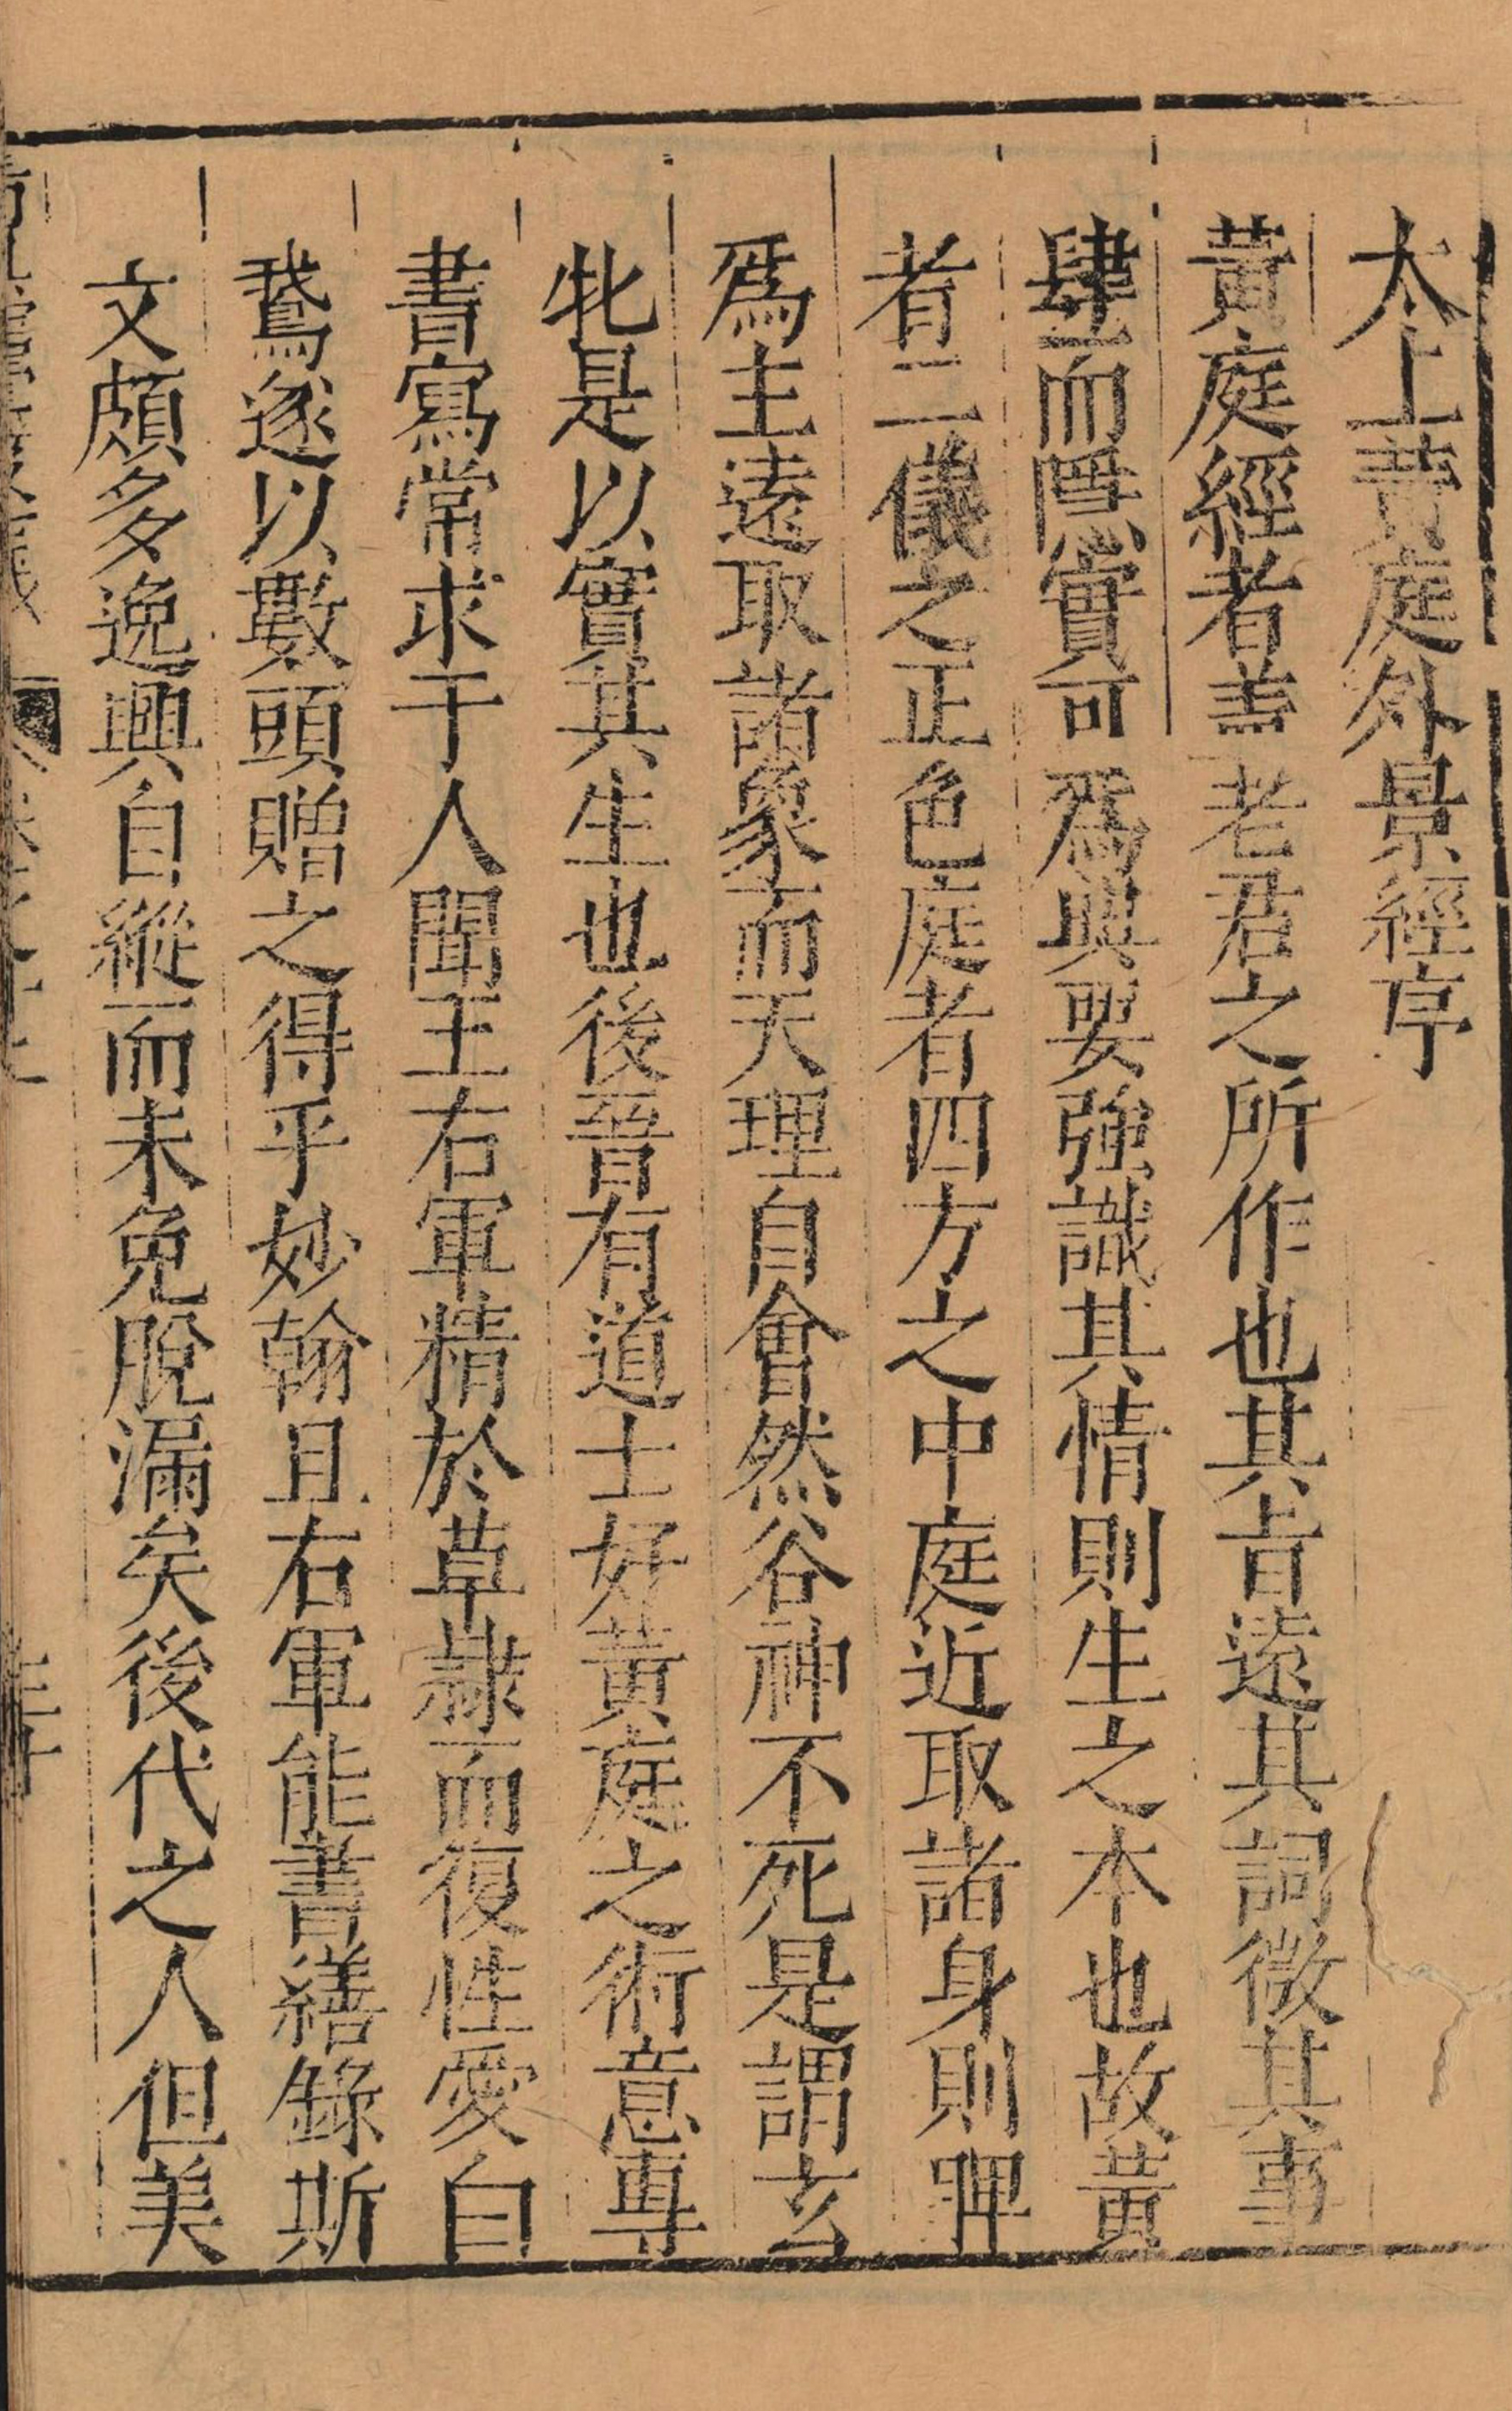 太上黃庭外景經序
黃庭經者盖老君之所作也其旨遠其詞微其事
肆而隱實可爲典要強識其情則生之本也故黃
者二儀之正色庭者四方之中庭近取諸身則脾
爲主遠取諸象而天理自會然谷神不死是謂玄
牝是以寳其生也後晉有道士好黃庭之術意專
書寫常求于人聞王右軍精於草隷而復性愛白
鵞遂以數頭贈之得乎妙翰且右軍能書繕錄斯
文頗多逸興自縱而未免脫漏矣後代之人但美